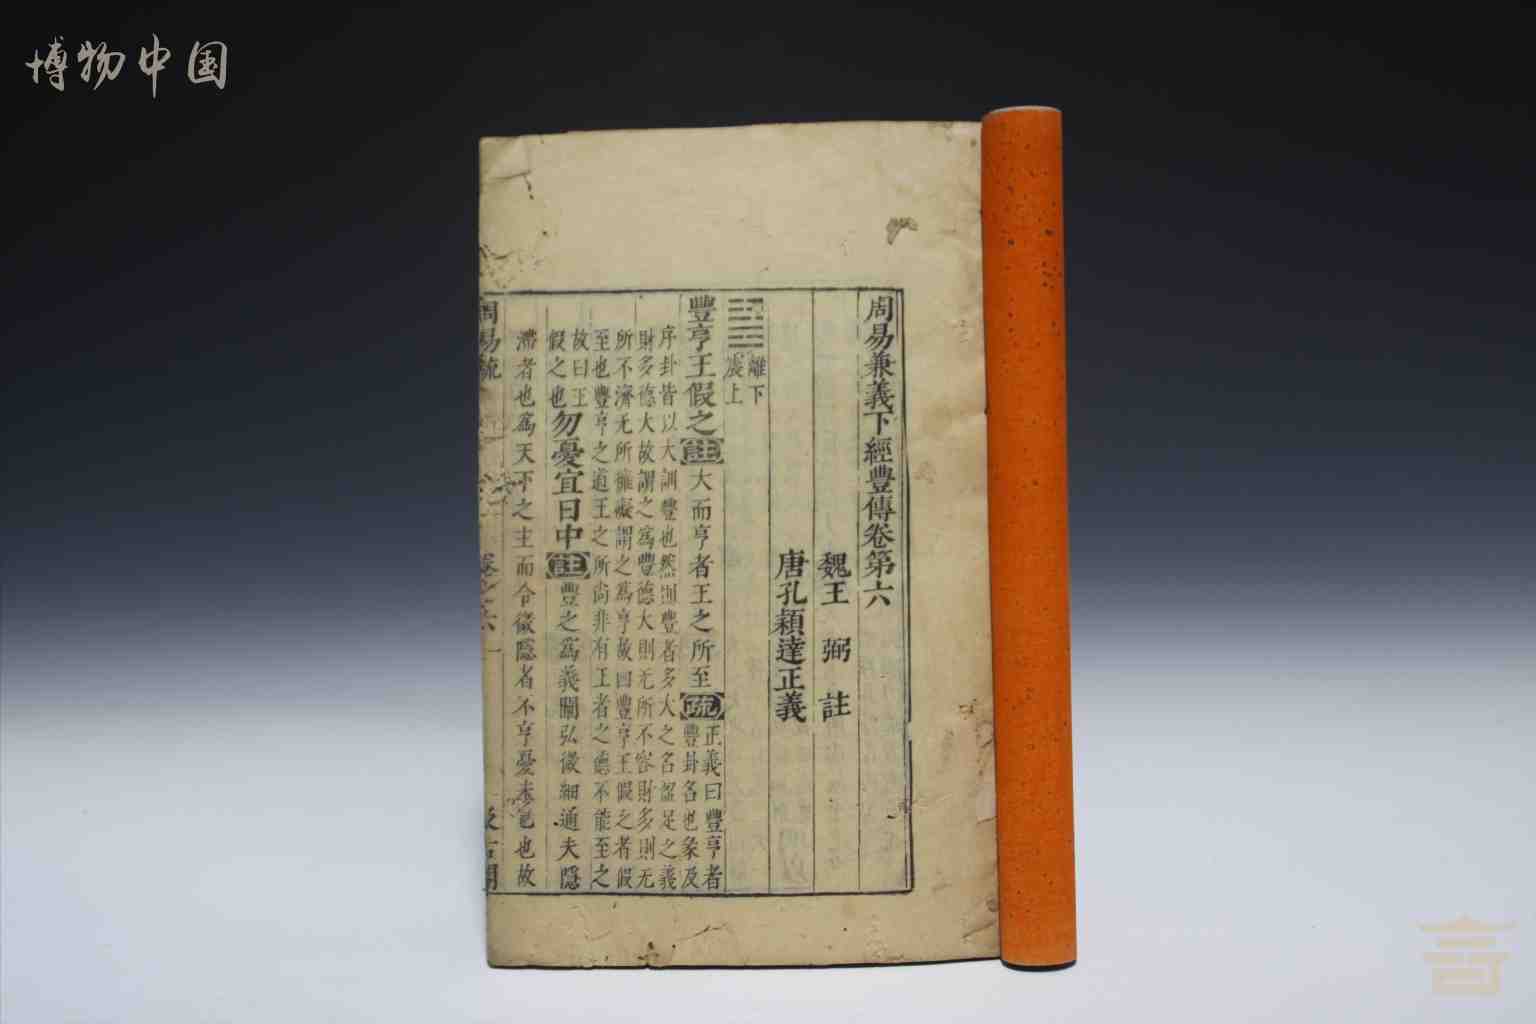 博物中国
周易兼義下經豐傳卷第六
魏王 弼 註
唐孔穎達正義
離下
震上
豐亨王假之註大而亨者王之所至疏正義曰豐亨者
豐卦名也彖及
序卦皆以大訓豐也然則豐者多大之名盈足之義
財多德大故謂之為豐德大則无所不容財多則无
所不濟无所擁礙謂之為亨故曰豐亨王假之者假
至也豐亨之道王之所尚非有王者之德不能至之
故曰王
假之也勿憂宜日中註豐之為義闡弘微細通夫隱
滯者也為天下之主而令微隱者不亨憂未已也故
周易疏 卷之六 一 汲古閣